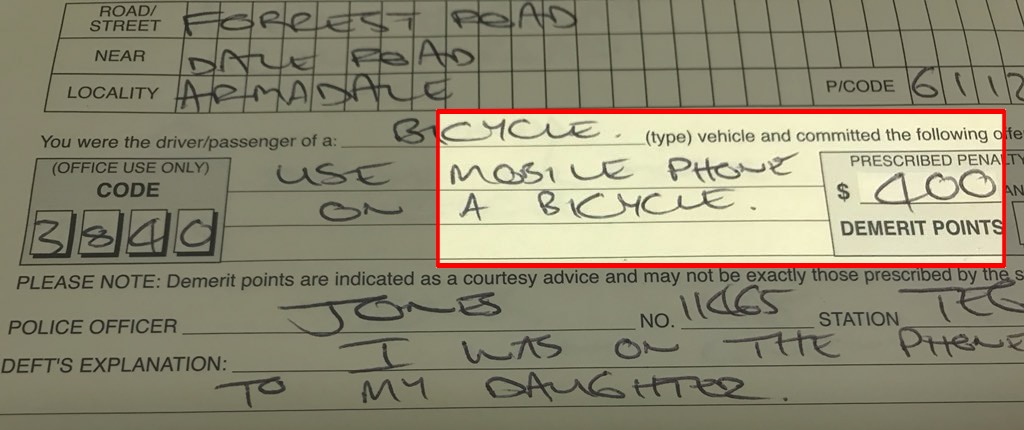 ROAD/ STREET FORREST ROAD
NEAR DALE ROAD
LOCALITY ARMADALE P/CODE 6112
You were the driver/passenger of a: BICYCLE. (type) vehicle and committed the following
(OFFICE USE ONLY) USE MOBILE PHONE PRESCRIBED PENALTY
CODE ON A BICYCLE. $ 400
3840 DEMERIT POINTS
PLEASE NOTE: Demerit points are indicated as a courtesy advice and may not be exactly those prescribed by the
POLICE OFFICER JONES NO. 11465 STATION
DEFT'S EXPLANATION: I WAS ON THE PHONE
TO MY DAUGHTER.